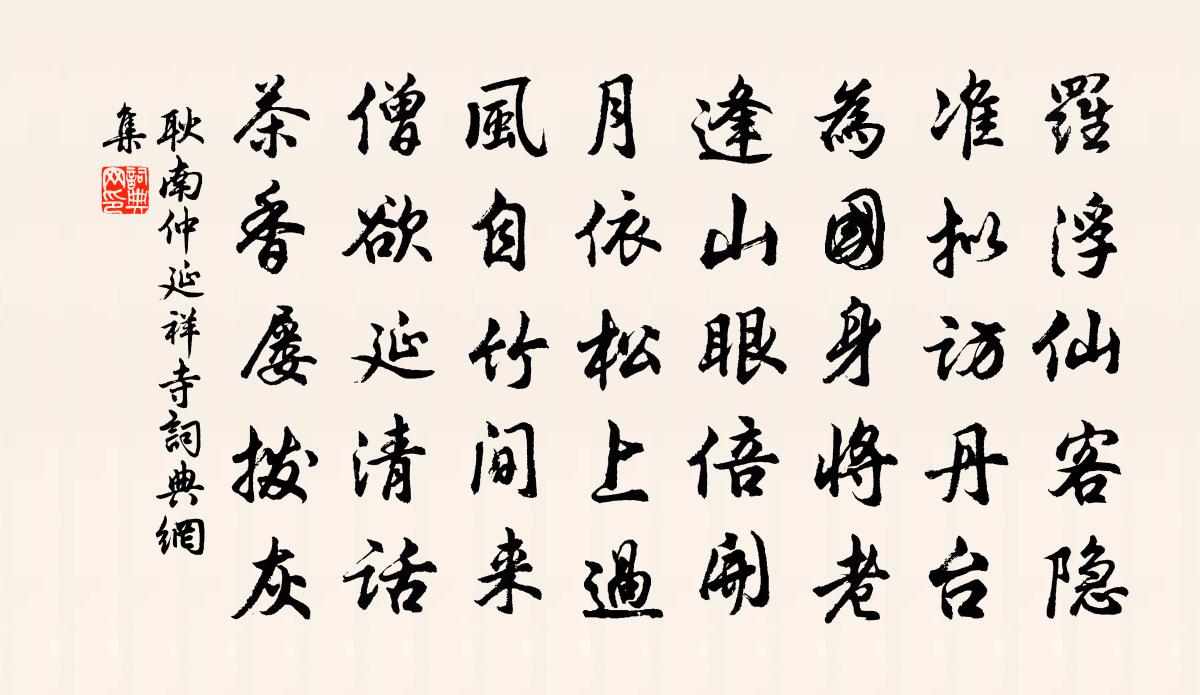 羅浮仙客隐
准拟訪丹台
為國身將老
逢山眼倍開
月依松上過
風自竹間来
僧欲延清話
茶香屡撥灰
耿南仲延祥寺詞典網
集
詞典
网印